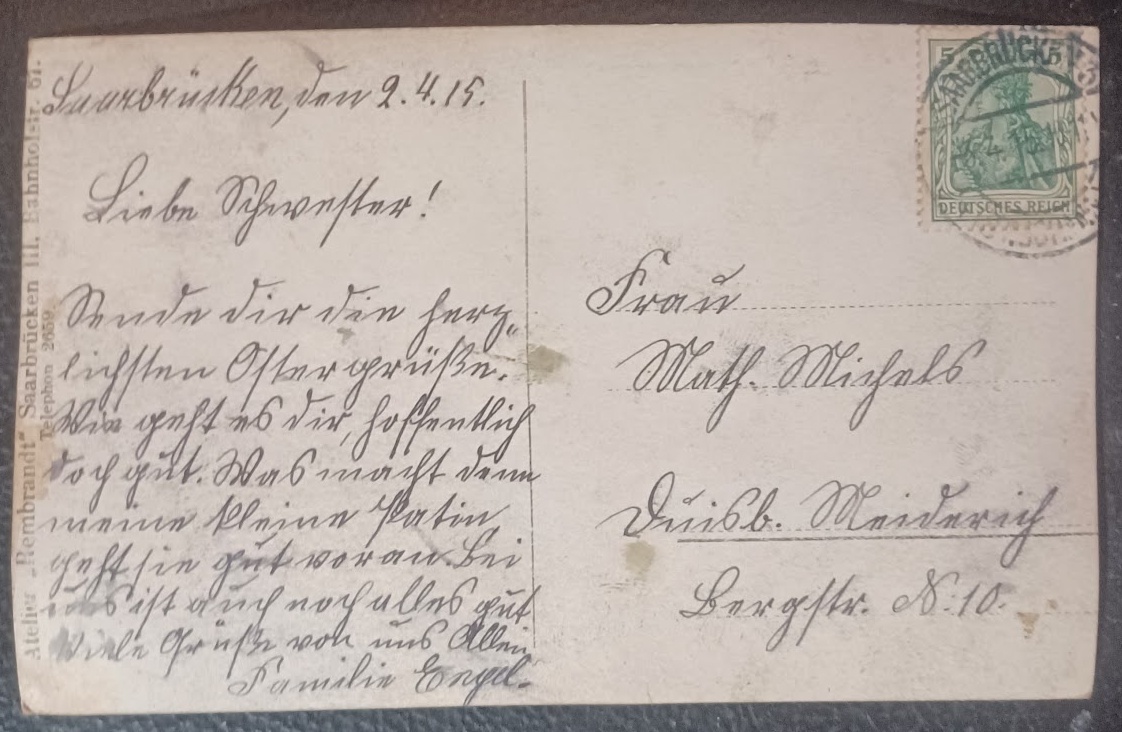 Atelier „Rembrandt" Saarbrücken III, Bahnhofstr. 61.
Telephon 2659.
Saarbrücken, den 2.4.15.
Liebe Schwester!
Sende dir die herz-
lichsten Ostergrüße.
Wie geht es dir, hoffentlich
doch gut. Was macht denn
meine kleine Patin,
geht sie gut voran. Bei
uns ist auch noch alles gut
Viele Grüße von uns Allen
Familie Engel.
5 5
DEUTSCHES REICH
SAARBRÜCKEN
Frau
Math. Michels
Duisb. Meiderich
Bergstr. N. 10.